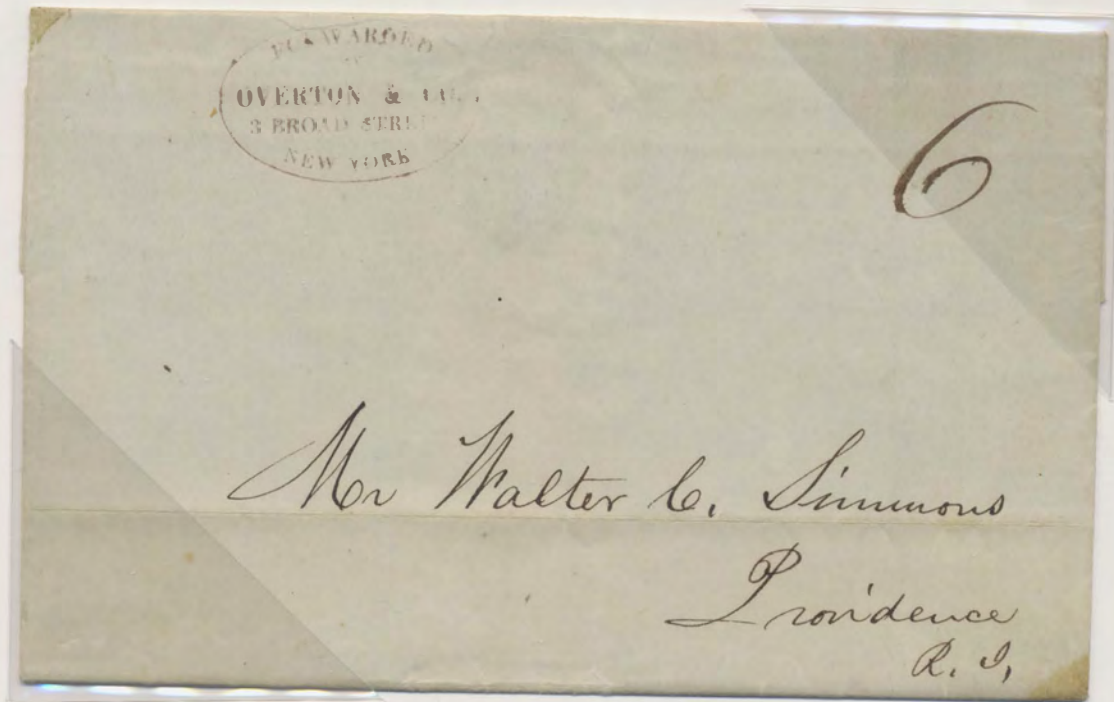 FORWARDED
OVERTON & CO.
3 BROAD STREET
NEW YORK
6
Mr Walter C. Simmons
Providence
R. I,